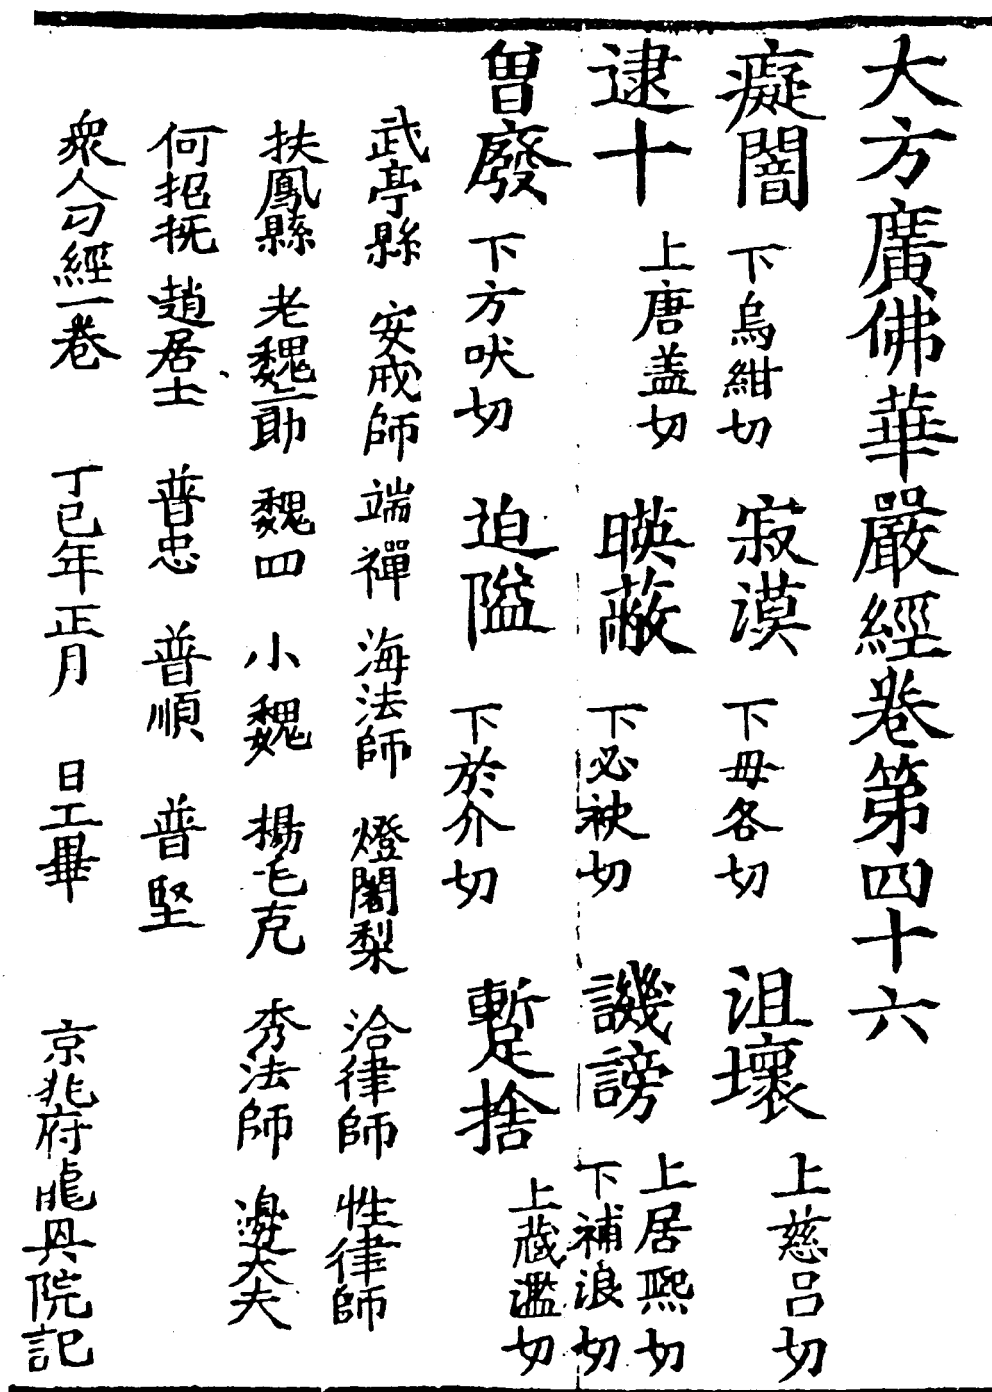 大方廣佛華嚴經卷第四十六
癡闇 下烏紺切 寂漠 下毋各切 沮壞 上慈呂切
逮十 上唐盖切 暎蔽 下必袂切 譏謗 上居熙切 下補浪切
曾廢 下方吠切 迫隘 下於介切 蹔捨 上藏濫切
武亭縣 安戒師 端禪 海法師 燈闍梨 洽律師 性律師
扶鳳縣 老魏助 魏四 小魏 楊毛克 秀法師 邊大夫
何招抚 趙居士 普忠 普順 普堅
衆人刁經一卷 丁巳年正月 日工畢 京兆府龍興院記